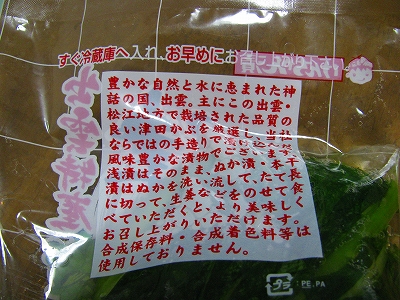 すぐ冷蔵庫へ入れ、お早めにお召し上がり下さい
出雲特産
豊かな自然と水に恵まれた神
話の国、出雲。主にこの出雲・
松江地方で栽培された品質の
良い津田かぶを厳選し、当社
ならではの手造りで漬け込んだ
風味豊かな漬物です。
浅漬はそのまま、ぬか漬・本干
漬はぬかを洗い流して、細長く
に切って、生姜などをのせて食
べていただくと、より美味しく
お召し上がりいただけます。
合成保存料・合成着色料等は
使用しておりません。
プラ
:PE,PA